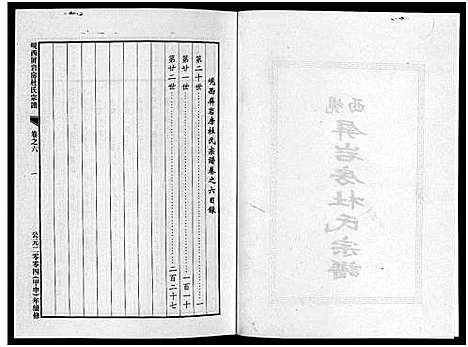 西峴
屏岩房杜氏宗譜
峴西屏岩房杜氏宗譜卷之六目錄
第二十世……………………一
第廿一世……………………一百一十
第廿二世……………………二百二十七
峴西屏岩房杜氏宗譜
卷之六
一
公元二零零四(甲申)年續修